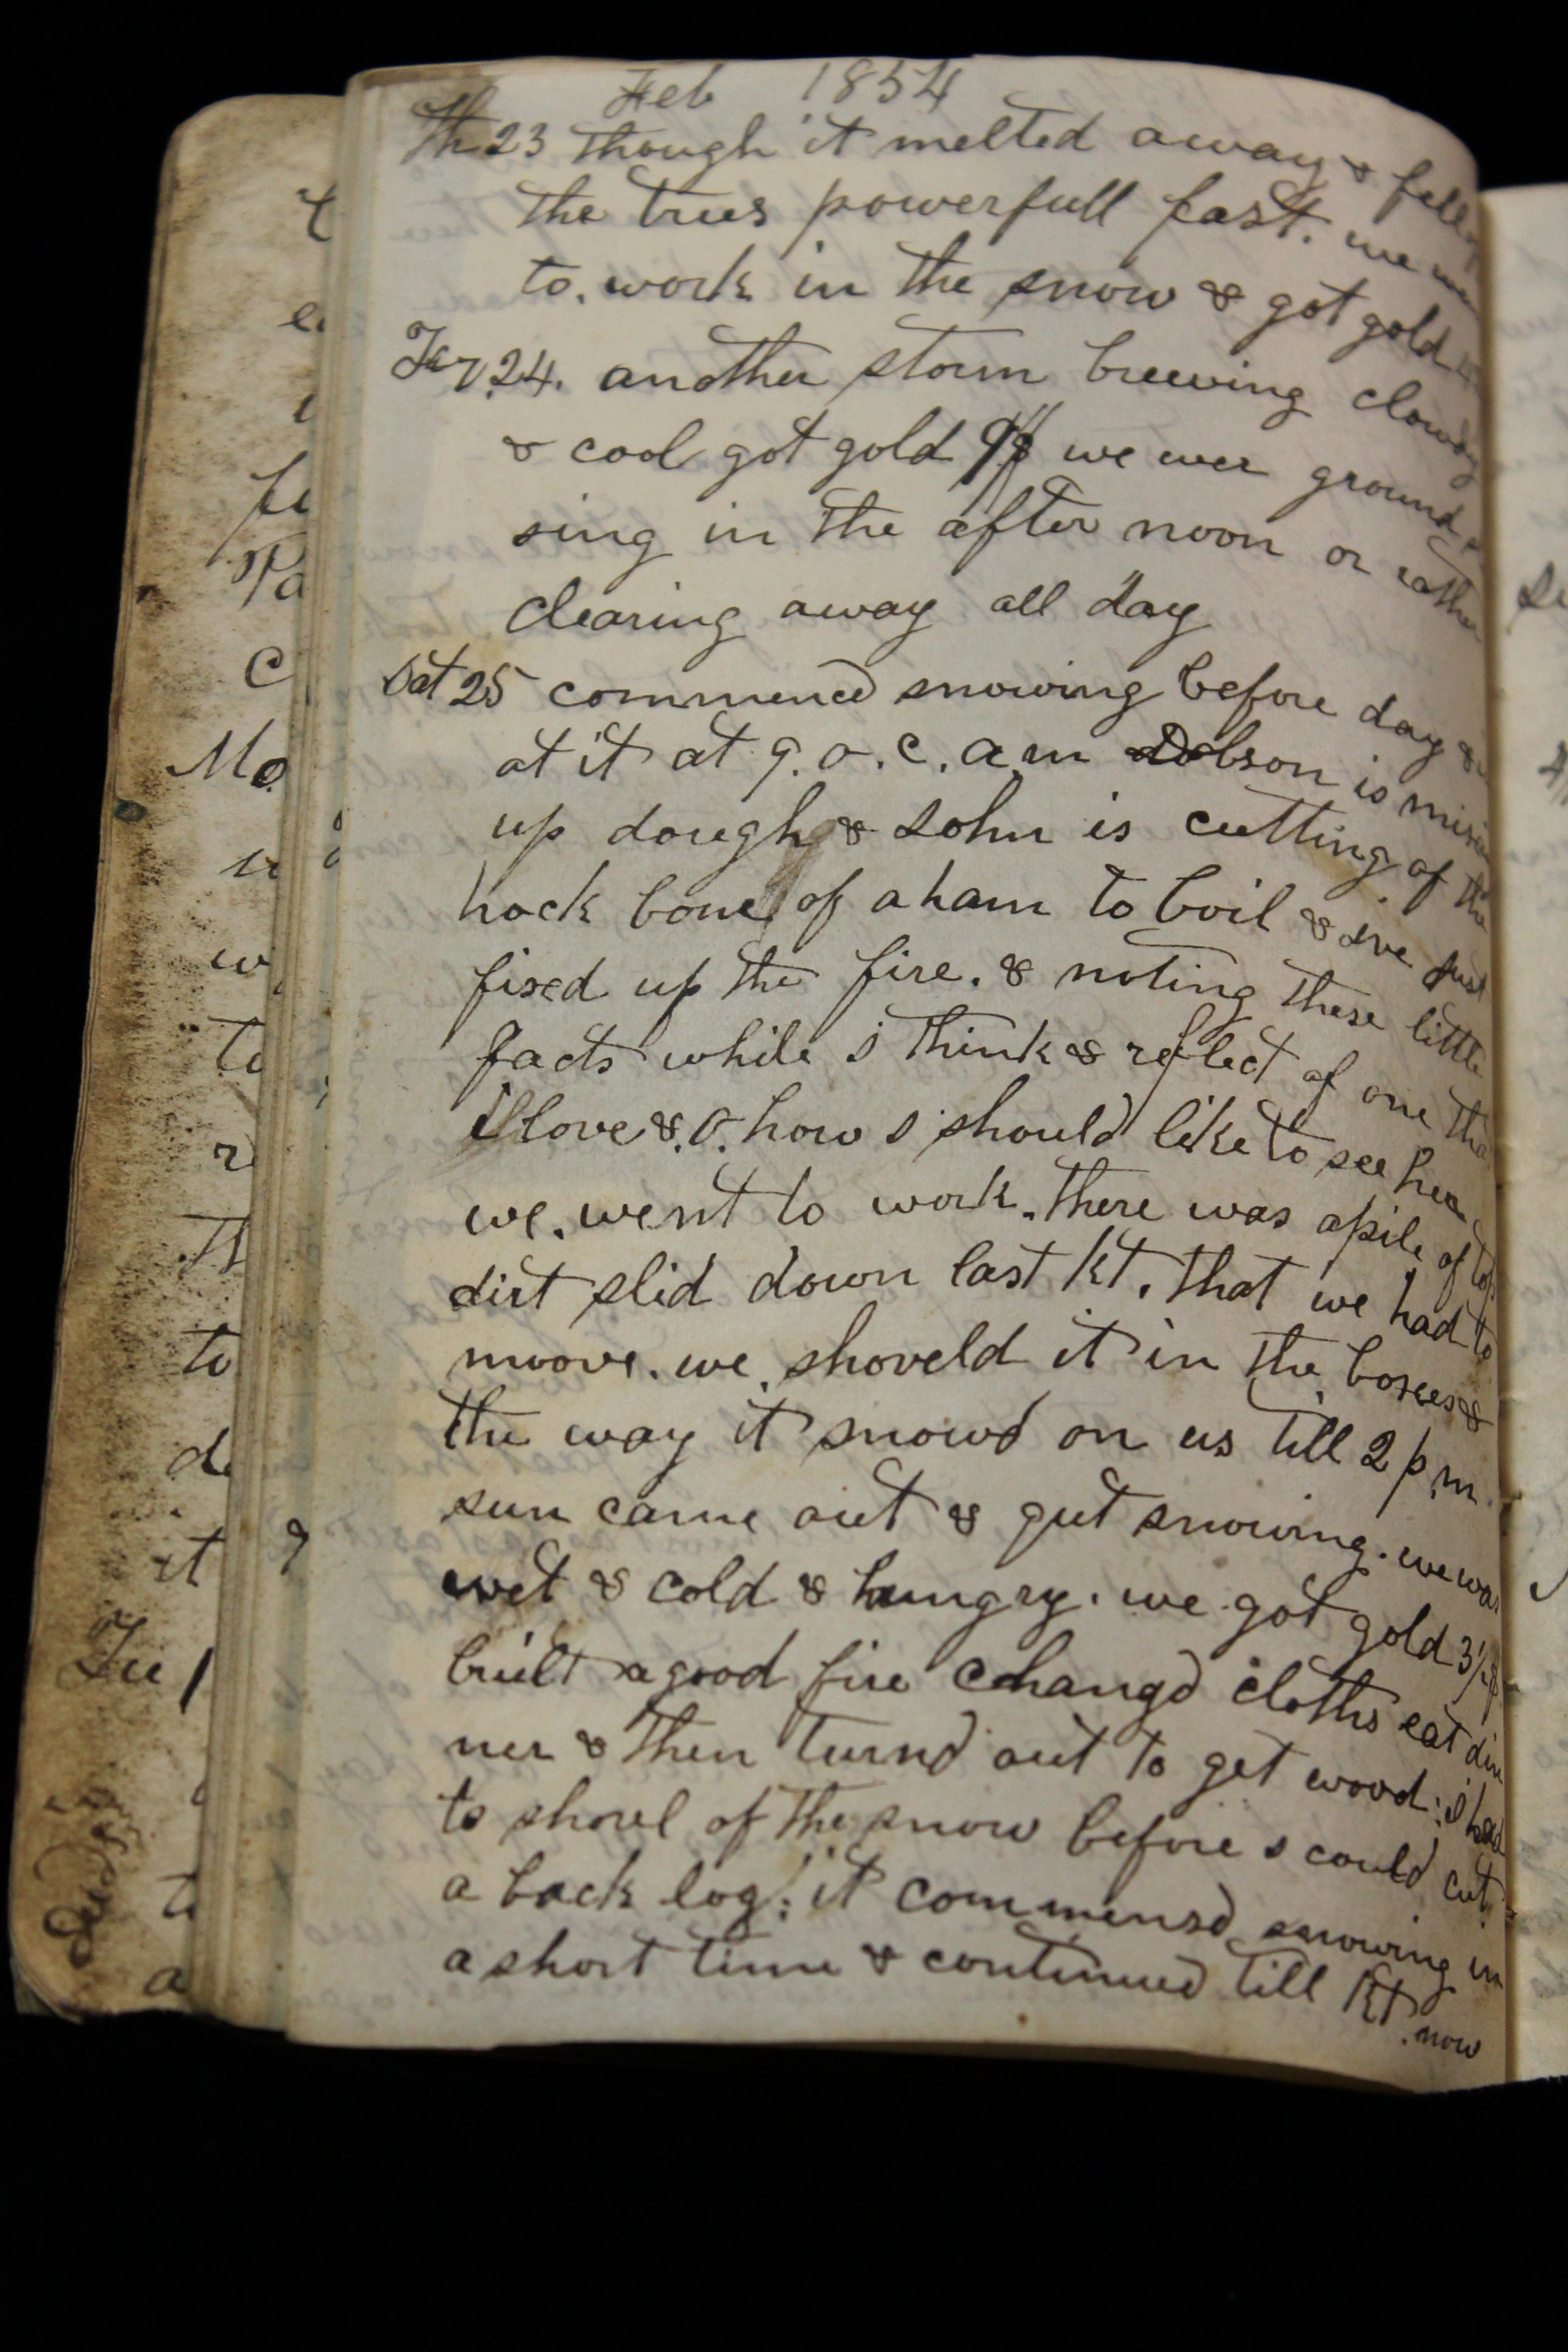 Feb 1854
Th 23 though it melted away & fell
the trees powerfull fast. we
to. work in the snow & got gold
Fry. 24. another storm brewing clowdy
& cool got gold we wer ground
sing in the after noon or rather
clearing away all day
Sat 25 commenced snowing before day &
at it at 9. o. c. a m Dobson is
up dough & John is cutting of the
hock bone of a ham to boil & Ive just
fixed up the fire. & noting these little
facts while I think & reflect of one tha
I love &. O. how I should like to see her
we. went to work. there was a pile of top
dirt slid down last kt. that we had to
moove. we. shoveld it in the boxees &
the way it snowd on us till 2 p m.
sun came out & qut snowing. we was
wet & cold & hungry. we got gold
built a good fire changd cloths eat din
ner & then turnd out to get wood: I had
to shovel of the snow before I could cut
a back log: it commensd snowing in
a short time & continued till kt
. now
Mo
Tu